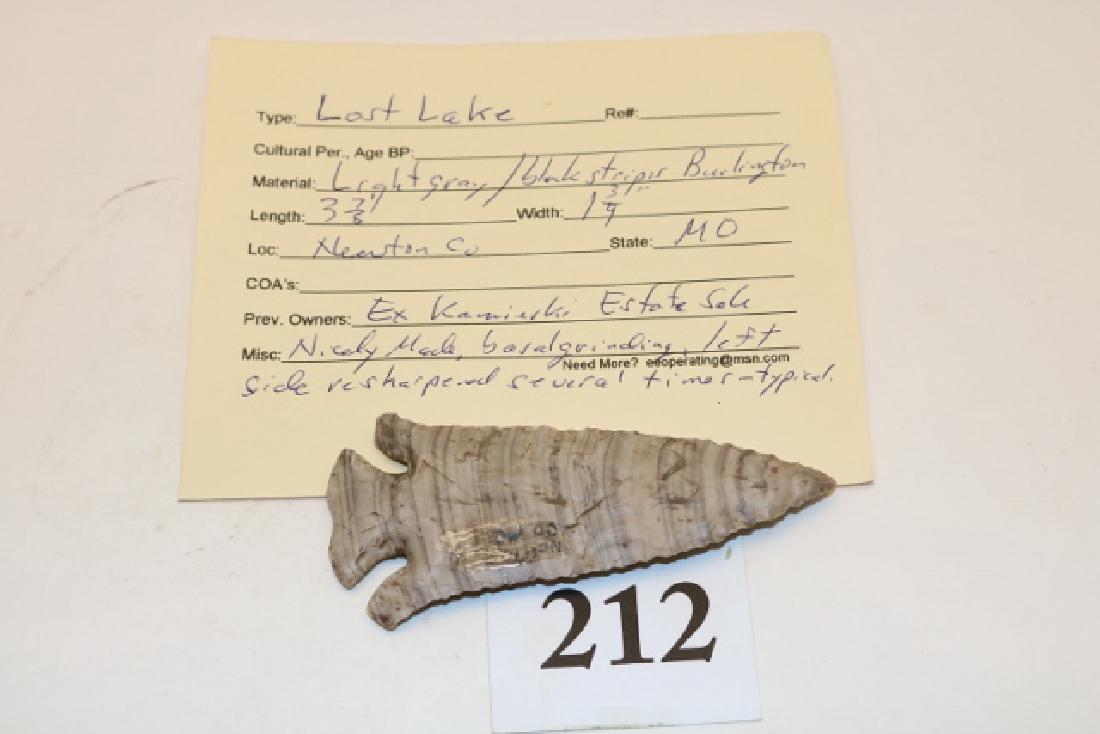 Type: Lost Lake Re#:
Cultural Per., Age BP:
Material: Light gray/black stripes Burlington
Length: 3 7/8" Width: 1 3/4"
Loc: Newton Co State: MO
COA's:
Prev. Owners: Ex Kaminski Estate Sale
Misc: Nicely Made, basal grinding, left
Need More? eeoperating@msn.com
side resharpened several times - typical.
212